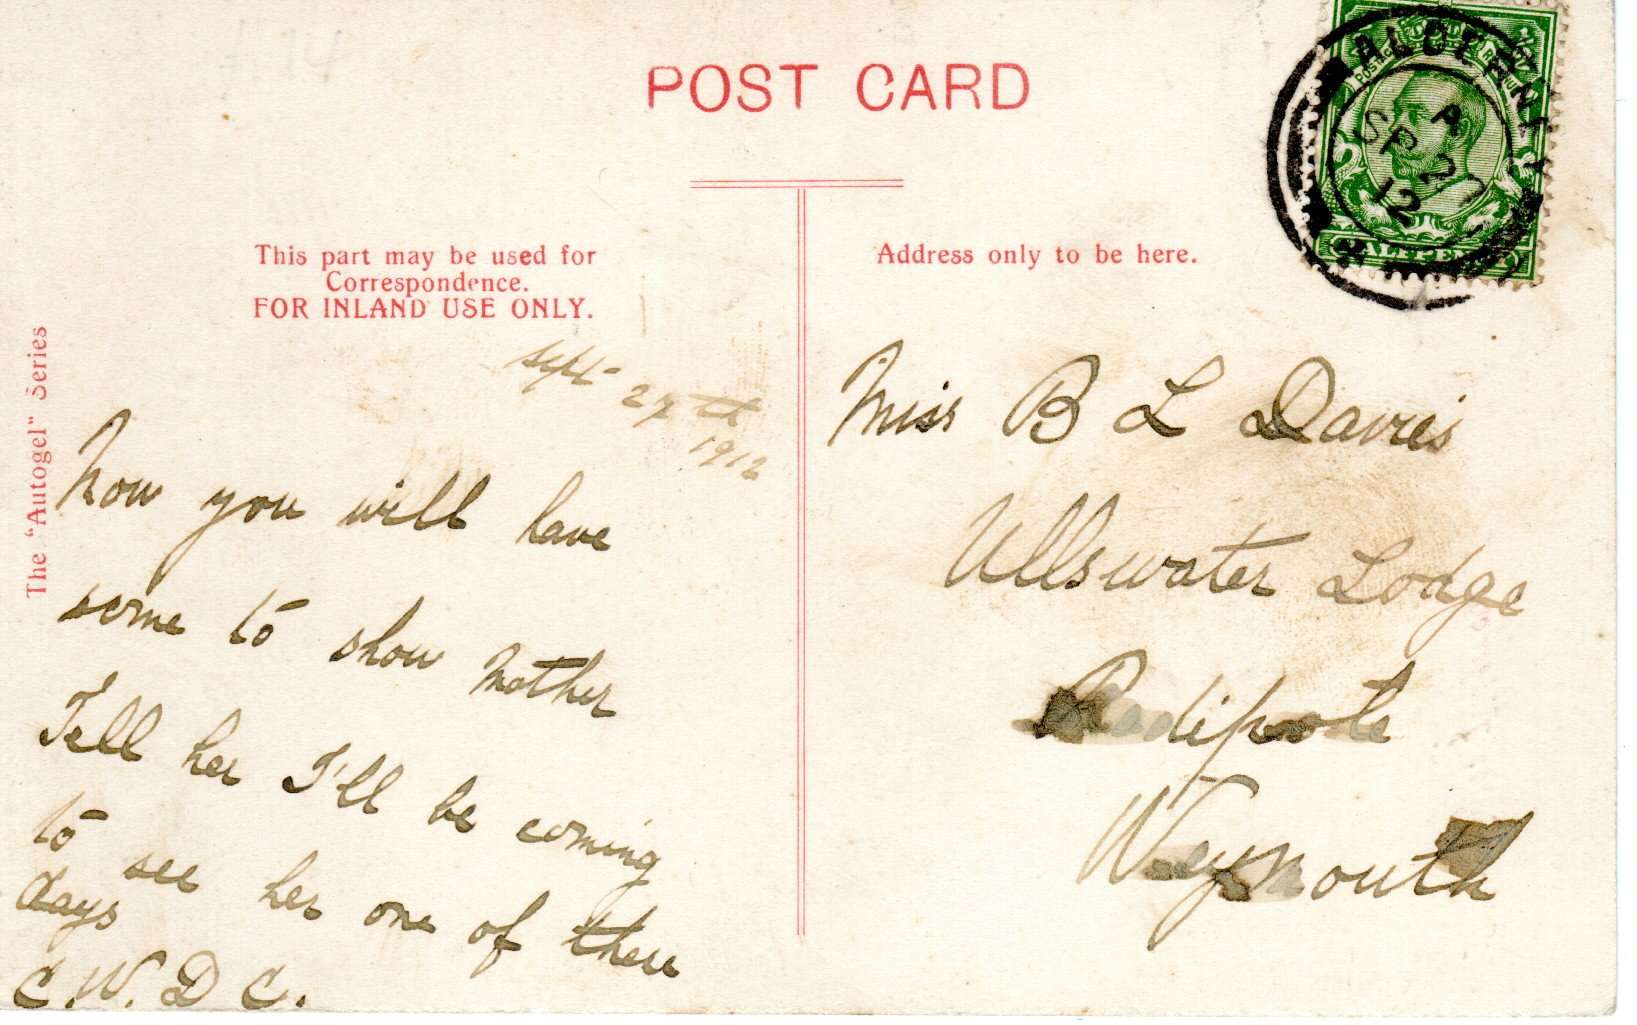 POST CARD
This part may be used for
Correspondence.
FOR INLAND USE ONLY.
Address only to be here.
The "Autogel" Series
ALDERNEY
A
SP 27
12
HALFPENNY
Sept 27th
1912
Now you will have
some to show Mother
Tell her I'll be coming
to see her one of these
days
C.W.D C.
Miss B L Davies
Ullswater Lodge
Radipole
Weymouth